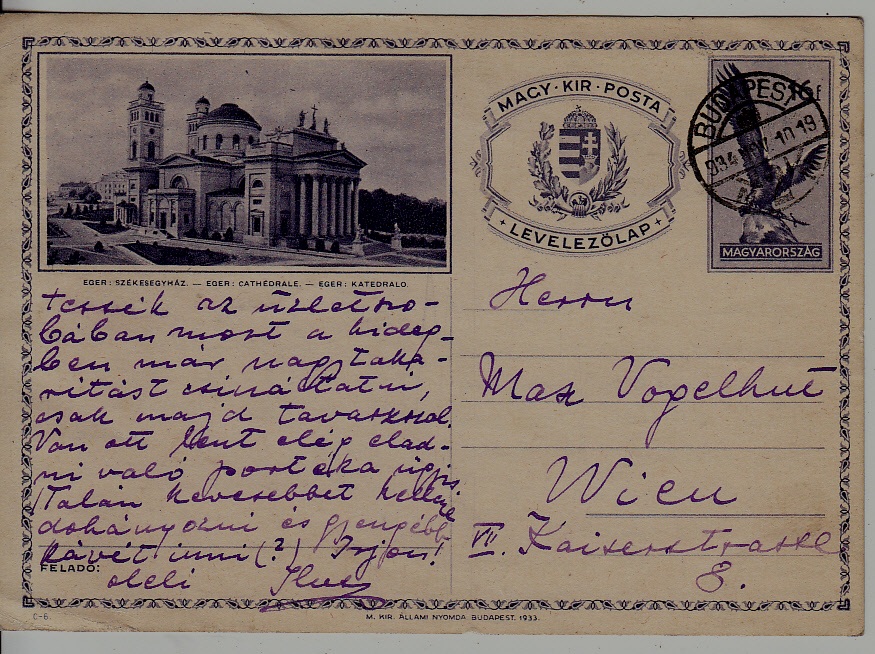 MAGY·KIR·POSTA
LEVELEZŐLAP
BUDAPEST
934 10 19
16 f
MAGYARORSZÁG
EGER: SZÉKESEGYHÁZ. — EGER: CATHÉDRALE. — EGER: KATEDRALO.
tessék az üzletszo-
bában most a hideg-
ben már nagytaka-
rítást csináltatni,
csak majd tavasszal.
Van ott bent elég elad-
ni való portéka úgyis
Talán kevesebbet kellene
dohányozni és gyengébb
kávét inni (?) Írjon!
öleli
FELADÓ:
Herrn
Max Vogelhut
Wien
VII. Kaiserstrasse
8.
C-6.
M. KIR. ÁLLAMI NYOMDA. BUDAPEST. 1933.